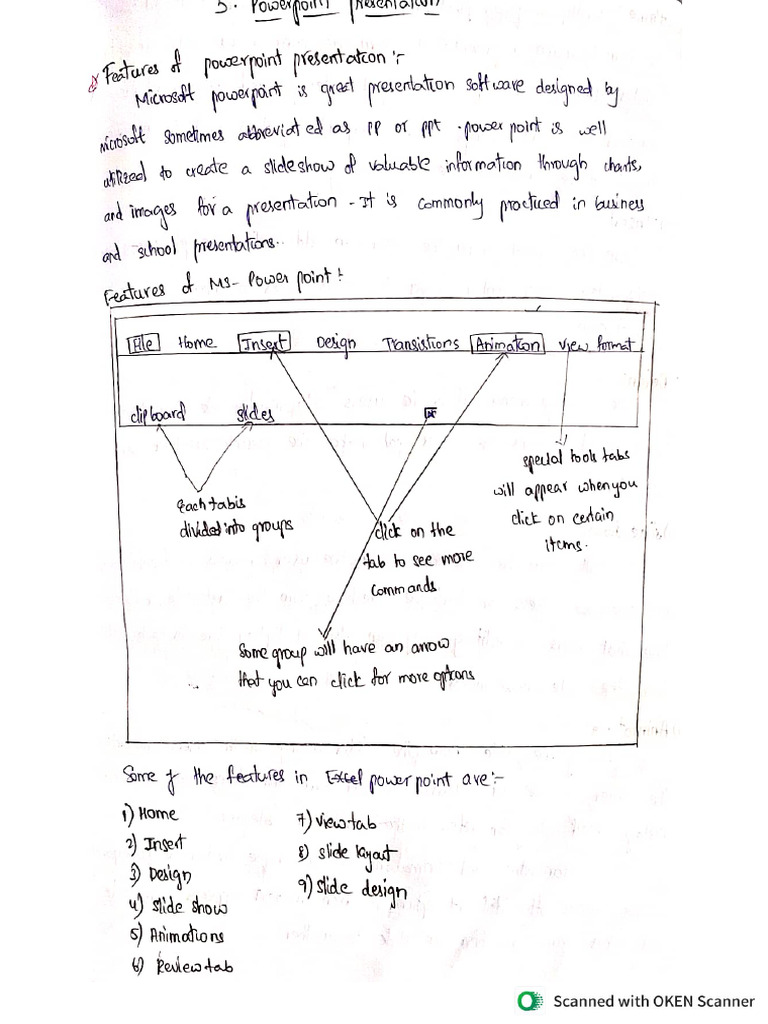 5. Powerpoint presentation
Features of powerpoint presentation :-
Microsoft powerpoint is great presentation software designed by
microsoft sometimes abbreviated as pp or ppt . power point is well
utilized to create a slideshow of valuable information through charts,
and images for a presentation - It is commonly practiced in business
and school presentations..
Features of MS- Power point :
File Home Insert Design Transistions Animation View format
clipboard slides
special tools tabs
will appear when you
click on certain
items.
Each tab is
divided into groups
click on the
tab to see more
commands
Some group will have an arrow
that you can click for more options
Some of the features in Excel power point are :-
1) Home
2) Insert
3) Design
4) slide show
5) Animations
6) Review tab
7) view tab
8) slide layout
9) slide design
Scanned with OKEN Scanner